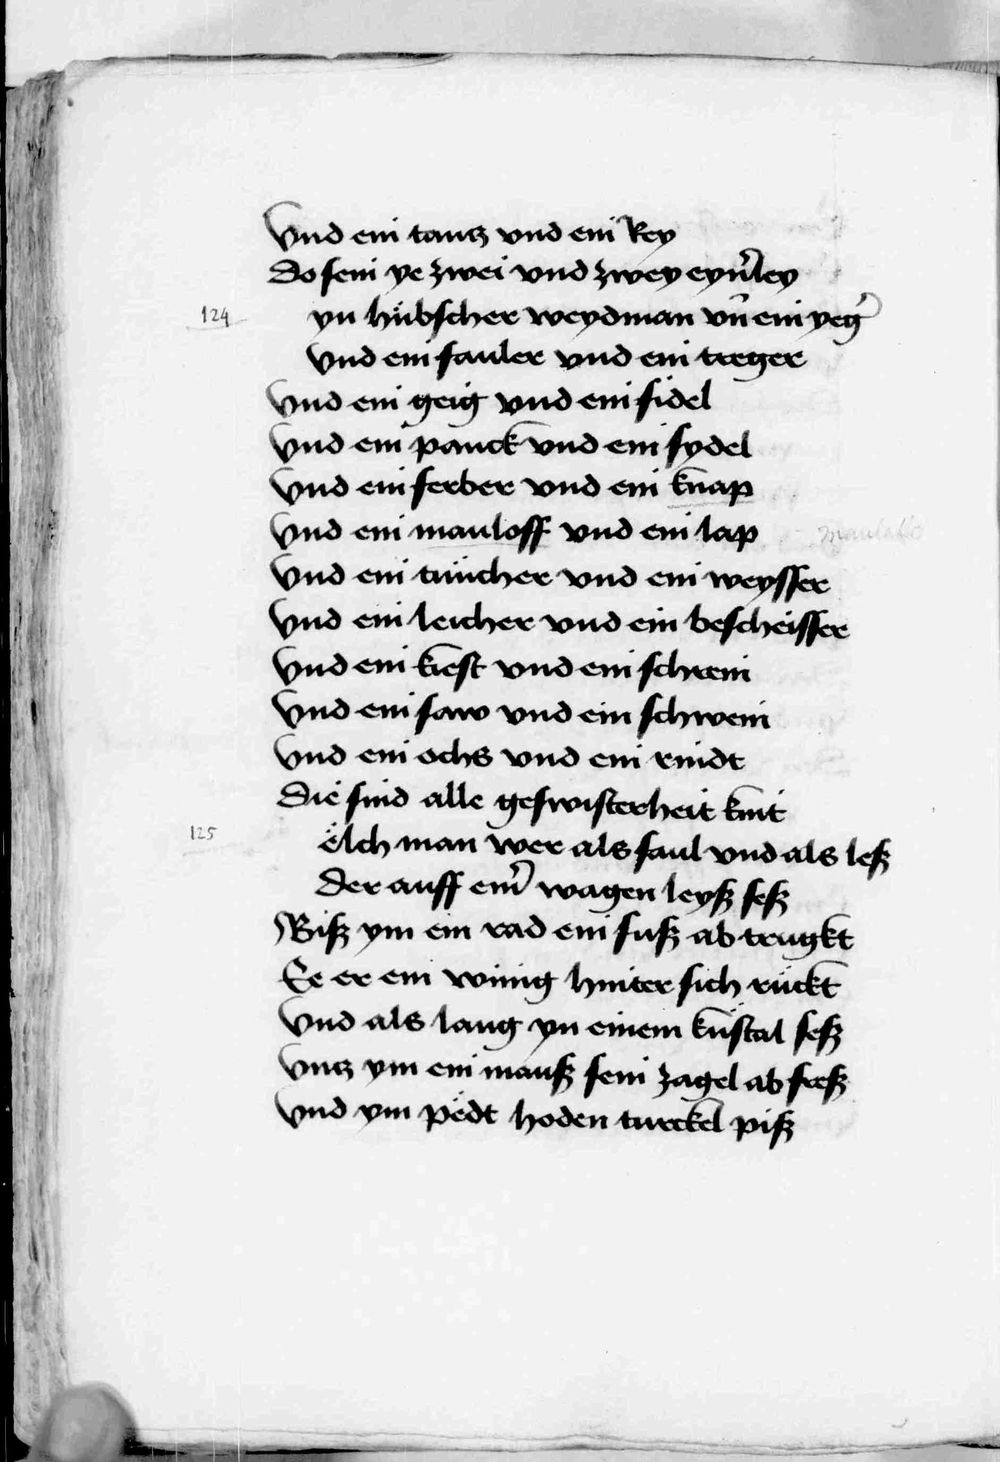 Vnd ein tantz vnd ein Rey
Do sein ye zwei vnd zwey eyn̄ley
124 yn hübscher weydman vn̄ ein yeg̉
Vnd ein fauler vnd ein treger
Vnd ein geig vnd ein fidel
Vnd ein panck vnd ein sydel
Vnd ein ferber vnd ein knap
Vnd ein mauloff vnd ein lap
Vnd ein tüncher vnd ein weysser
Vnd ein leicher vnd ein bescheisser
Vnd ein kiest vnd ein schrein
Vnd ein saw vnd ein schwein
Vnd ein ochs vnd ein rindt
Die sind alle geswisterheit kint
125 ëlch man wer als faul vnd als leß
Der auff eim̉ wagen leyß seß
Biß ym ein rad ein fuß ab trugkt
Ee er ein winig hinter sich rückt
Vnd als lang yn einem küstal seß
Vntz ym ein mauß sein zagel ab freß
Vnd ym pëdt hoden turckel piß